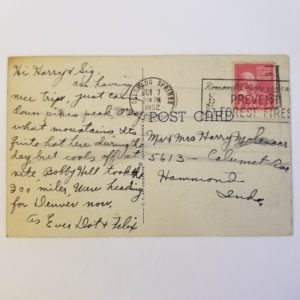 Hi Harry & Sig.
am having
nice trip, just came
down pikes peak
what mountains. Its
quite hot here during the
day but cools off at
nite, Bobby Hall took
300 miles. Were heading
for Denver now.
As Ever Dot & Felix
COLORADO SPRINGS
7
PM
1952
Remember
PREVENT
FOREST FIRES
POST CARD
Mr & Mrs Harry Molenaar
5613 - Calumet Ave
Hammond
Ind.